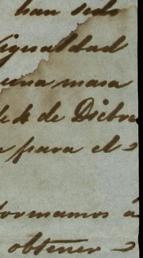 han sido
Igualdad
una masa
de de Dicbre
para el
formamos á
obtener